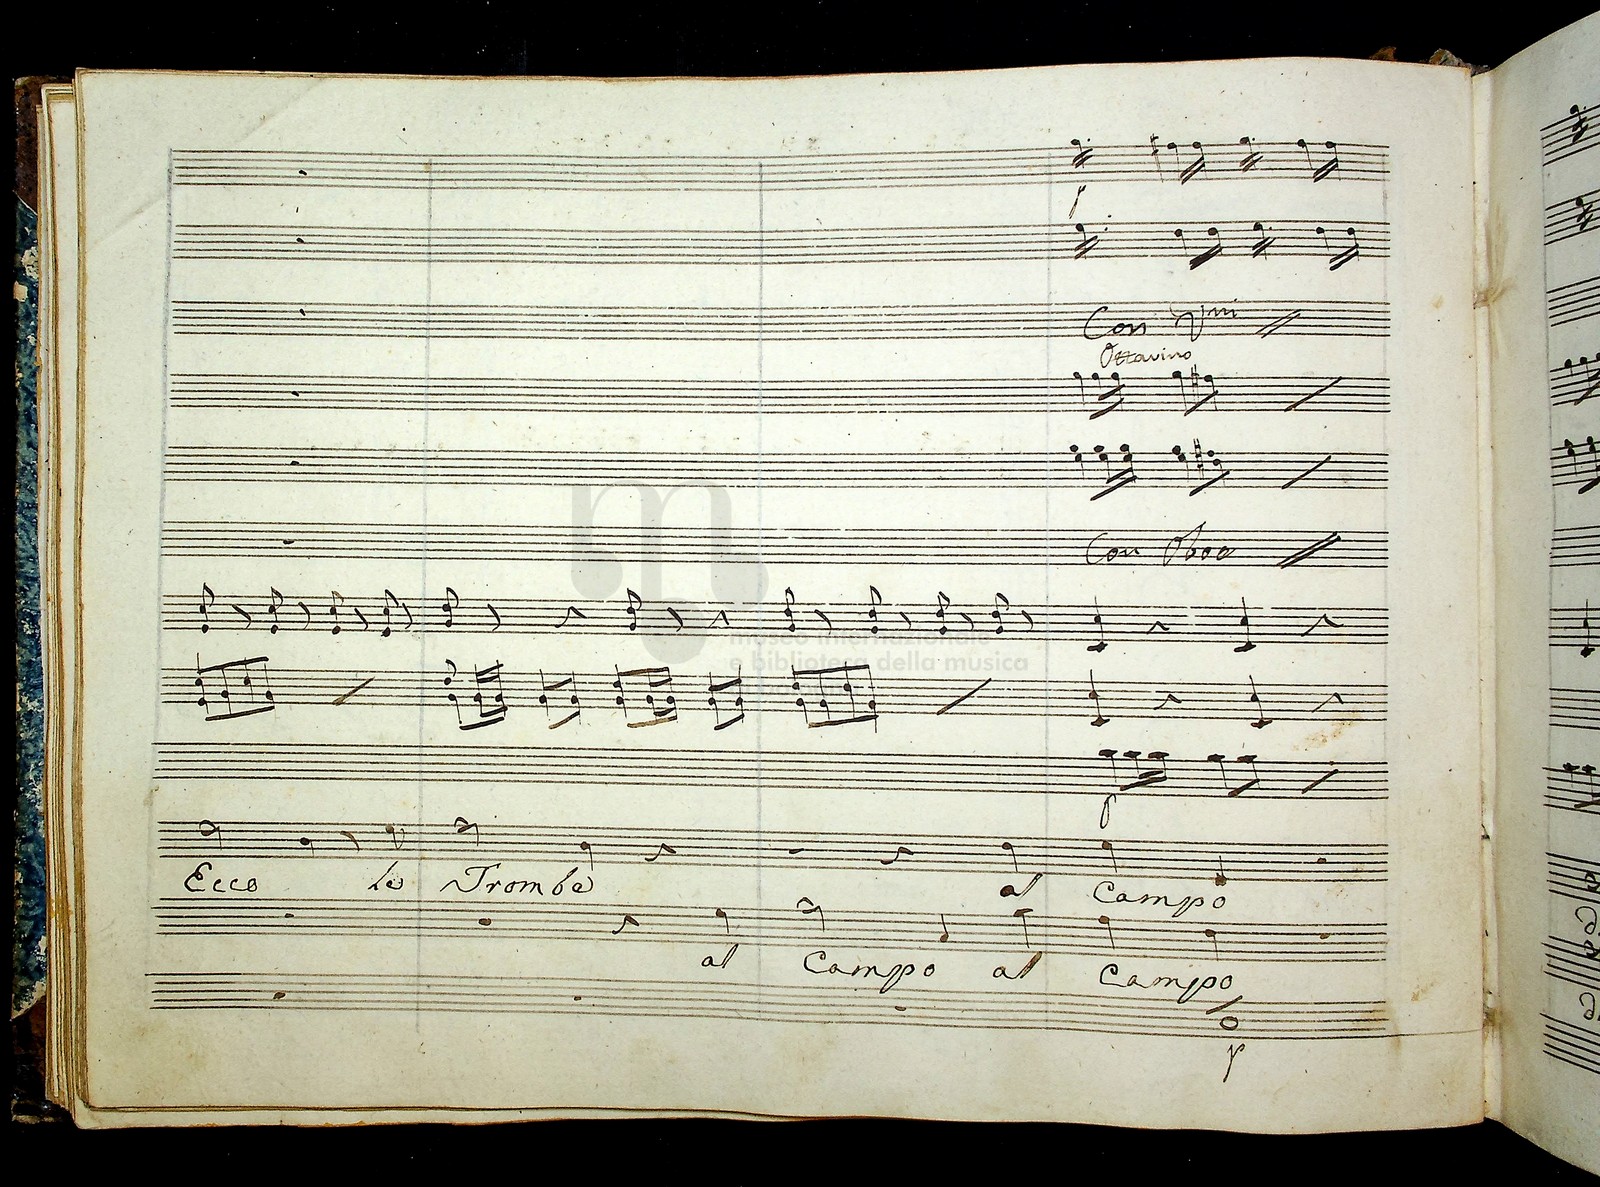 Con Vni
Ottavino
Con Oboe
museo internazionale
e biblioteca della musica
Ecco le Trombe al Campo
al Campo al Campo